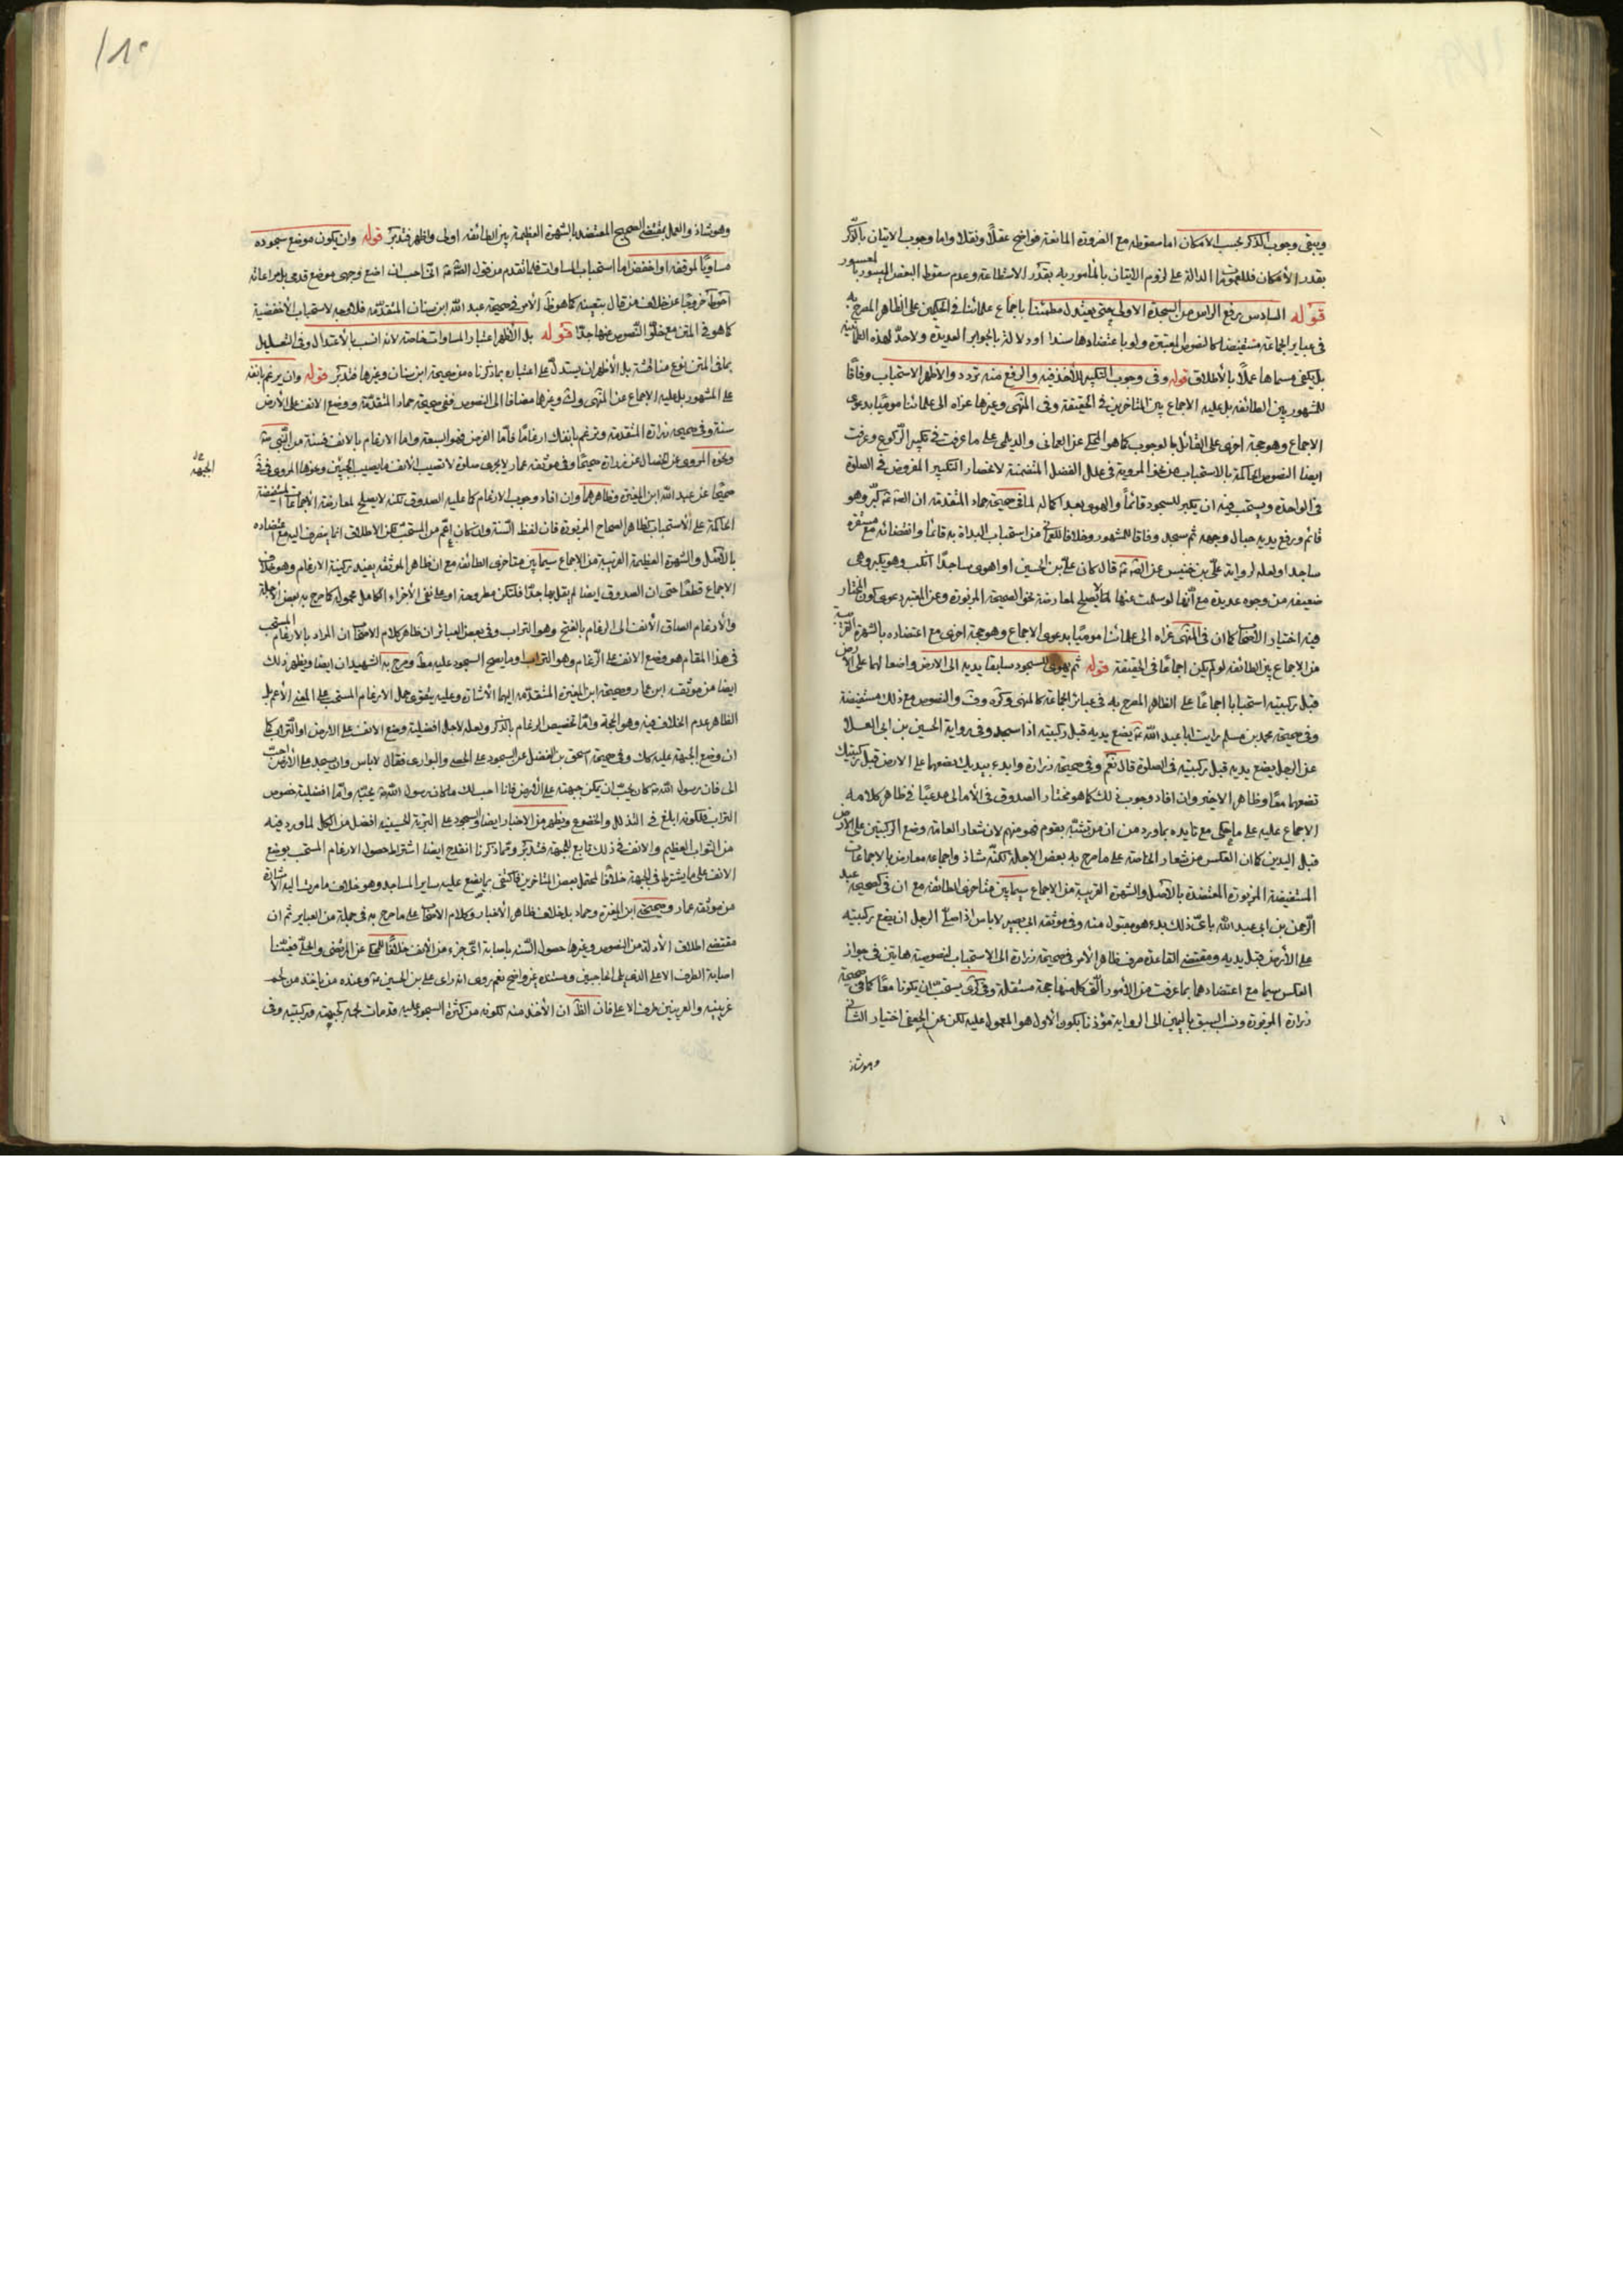 ويبقى وجوب الذكر بحسب الامكان اما سقوطه مع الضرورة المانعة فواضح عقلًا ونقلا واما وجوب الاتيان بالذكر
بقدر الأمكان فللعمومات الدالة على لزوم الاتيان بالمأمور به بقدر الاستطاعة وعدم سقوط البعض الميسور بالمعسور
قوله السادس رفع الراس من السجدة الاولى حتى يعتدل مطمئنا باجماع علمائنا في الحكمين على الظاهر المصرح به
في عباير الجماعة مستفيضا كالنصوص المعتبرة ولو باعتضادها سندا او دلالة بالجوابر العديدة ولا حدّ لهذه الطمانينة
بل يكفي مسماها عملًا بالأطلاق قوله وفي وجوب التكبير للأخذ فيه والرفع منه تردد والأظهر الاستحباب وفاقًا
للمشهور بين الطائفه بل عليه الاجماع بين المتاخرين في الحقيقة وفي المنتهى وغيرها عزاه الى علمائنا موميًا بدعوى
الاجماع وهو حجة اخرى على القائل بالوجوب كما هو المحكي عن العماني والديلمي على ما عرفت في تكبير الركوع وعرفت
ايضا النصوص الحاكمة بالاستحباب من نحو المروية في علل الفضل المتضمنة لانحصار التكبير المفروض في الصلوة
في الواحدة ويستحب فيه ان يكبر للسجود قائمًا والهوى بعد اكماله لما في صحيحة حماد المتقدمة ان الصادق كبّر وهو
قائم ورفع يديه حيال وجهه ثم سجد وفاقا للمشهور وخلافا للعماني من استحباب البداة به قائما وانقضائه مع مستقره
ساجدا ولعله لرواية معلى بن خنيس عن الصادق قال كان علي بن الحسين اذا هوى ساجدًا انكب وهو يكبر وهي
ضعيفه من وجوه عديدة مع انّها لو سلمت عنها لما تصلح لمعارضة نحو الصحيحة المزبورة وعن المعتبر دعوى كون المختار
فيه اختيار الأصحاب كما ان في المنتهى عزاه الى علمائنا موميًا بدعوى الاجماع وهو حجة اخرى مع اعتضاده بالشهرة القريبة
من الاجماع بين الطائفه لو لم يكن اجماعًا في الحقيقة قوله ثم يهوي للسجود سابقا يديه الى الارض واضعا لهما على الأرض
قبل ركبتيه استحبابا اجماعًا على الظاهر المصرح به في عبائر الجماعة كالمنتهى وكره وف والنصوص مع ذلك مستفيضة
وفي صحيحة محمد بن مسلم رايت ابا عبد الله يضع يديه قبل ركبتيه اذا سجد وفي رواية الحسين بن ابي العلا
عن الرجل يضع يديه قبل ركبتيه في الصلوة قال نعم وفي صحيحة زرارة وابدء بيديك تضعهما على الارض قبل ركبتيك
تضعهما معًا وظاهر الاخير وان افاد وجوب ذلك كما هو مختار الصدوق في الأمالي مدعيًا في ظاهر كلامه
الاجماع عليه على ما حكي مع تايده بما ورد من ان من تشبّه بقوم فهو منهم لان شعار العامة وضع الركبتين على الأرض
قبل اليدين كما ان العكس من شعار الخاصة على ما صرح به بعض الاجلة لكنّه شاذ واجماعه معارض بالاجماعات
المستفيضة المزبورة المعتضدة بالأصل والشهرة القريبة من الاجماع سيما بين متاخري الطائفه مع ان في صحيحة عبد
الرحمن بن ابي عبد الله باءيّ ذلك بدء هو مقبول منه وفي موثقة ابي بصير لا باس اذا صلى الرجل ان يضع ركبتيه
على الأرض قبل يديه ومقتضى القاعدة صرف ظاهر الأمر في صحيحة زرارة الى الاستحباب لنصوصية هاتين في جواز
العكس سيما مع اعتضادهما بما عرفت من الأمور التي كل منها حجة مستقلة وفي كرى يستحب ان يكونا معًا كما في صحيحة
زرارة المزبورة ونسب السبق باليمين الى الرواية مؤذنا بكون الأول هو المعمول عليه لكن عن الجعفي اختيار الثاني
وهو شاذ
وهو شاذ والعمل بمقتضى الصحيح المعتضد بالشهرة العظيمة بين الطائفه اولى واظهر فتدبّر قوله وان يكون موضع سجوده
مساويًا لموقفه او اخفض اما استحباب المساوات فلما تقدم من قول الصادق انّي احب ان اضع وجهي موضع قدمي بل مراعاته
احوط خروجًا عن خلاف من قال بتعينه كما هو ظاهر الأمر في صحيحة عبد الله ابن سنان المتقدّمة فلا وجه لاستحباب الأخفضية
كما هو في المتن مع خلوّ النصوص عنها جدّا قوله بل الأظهر اعتبار المساوات خاصة لانه انسب بالأعتدال وفي التعليل
بما في المتن نوع مناقشة بل الأظهر ان يستدلّ على اعتباره بما ذكرناه من صحيحة ابن سنان وغيرها فتدبّر قوله وان يرغم بانفه
على المشهور بل عليه الاجماع عن المنتهى ولف وغيرها مضافا الى النصوص ففي صحيحة حماد المتقدّمة ووضع الانف على الأرض
سنة وفي صحيحة زرارة المتقدمة وترغم بانفك ارغامًا فأمّا الفرض فهو السبعة واما الارغام بالانف فسنة من النبي
ونحوه المروي عن الخصال عن زرارة صحيحًا وفي موثقة عمار لا يجزى صلوة لا تصيب الأنف ما يصيب الجبين ونحوها المروي في
على الجبهة
صحيحًا عن عبد الله ابن المغيرة وظاهرهما وان افاد وجوب الارغام كما عليه الصدوق لكنه لا يصلح لمعارضة الأجماعات المستفيضة
الحاكمة على الأستحباب كظاهر الصحاح المزبورة فان لفظ السنة وان كان اعمّ من المستحبّ لكن الاطلاق انما ينصرف اليه مع اعتضاده
بالأصل والشهرة العظيمة القريبة من الاجماع سيما بين متاخري الطائفه مع ان ظاهر الموثقة يفيد ركنية الارغام وهو خلاف
الاجماع قطعًا حتى ان الصدوق ايضا لم يقل بها جدًا فلتكن مطروحة او على نفي الأجزاء الكامل محمولة كما صرح به بعض الأجلة
والأرغام الصاق الأنف الى الرغام بالفتح وهو التراب وفي بعض العبائر ان ظاهر كلام الأصحاب ان المراد بالارغام المستحب
في هذا المقام هو وضع الانف على الرّغام وهو التراب او ما يصح السجود عليه مط وصرح به الشهيدان ايضا ويظهر ذلك
ايضا من موثقة ابن عمار وصحيحة ابن المغيرة المتقدّمة اليهما الأشارة وعليه يقوى حمل الارغام المستحب على المعنى الأعم بل
الظاهر عدم الخلاف فيه وهو الحجة وامّا تخصيص الارغام بالذكر ولعله لاجل افضلية وضع الانف على الارض او التراب كما
ان وضع الجبهة عليه كذلك وفي صحيحة اسحق بن الفضل عن السجود على الحصى والبواري فقال لا باس وان يسجد على الأرض احبّ
الى فان رسول الله كان يحبّ ان يمكن جبهته على الأرض فانا احب لك ما كان رسول الله يحبّه وامّا افضلية خصوص
التراب فلكونه ابلغ في التذلل والخضوع ويظهر من الاخبار ايضا والسجود على التربة الحسينيه افضل من الكل لما ورد فيه
من الثواب العظيم والانف في ذلك تابع للجبهة فتدبّر وممّا ذكرنا انقدح ايضا اشتراط حصول الارغام المستحب بوضع
الانف على ما يشترط في الجبهة خلافًا لمحتمل بعض المتاخرين فاكتفى بما يضع عليه ساير المساجد وهو خلاف ما مرت اليه الاشارة
من موثقه عمار وصحيحتي ابن المغيرة وحماد بل خلاف ظاهر الأخبار وكلام الأصحاب على ما صرح به في جملة من العباير ثم ان
مقتضى اطلاق الأدلة من النصوص وغيرها حصول السّنه باصابة ايّ جزء من الأنف خلافًا للمحكي عن المرتضى والحليّ فعيّنا
اصابة الطرف الاعلى الذي يلي الحاجبين ومستنده غير واضح نعم روى انه راى علي بن الحسين وعنده من ياخذ من لحم
عرنينه والعرنين طرف الاعلى فان الظاهر ان الأخذ منه لكونه من كثرة السجود عليه قد مات لحمه كجبهته وركبتيه وفي